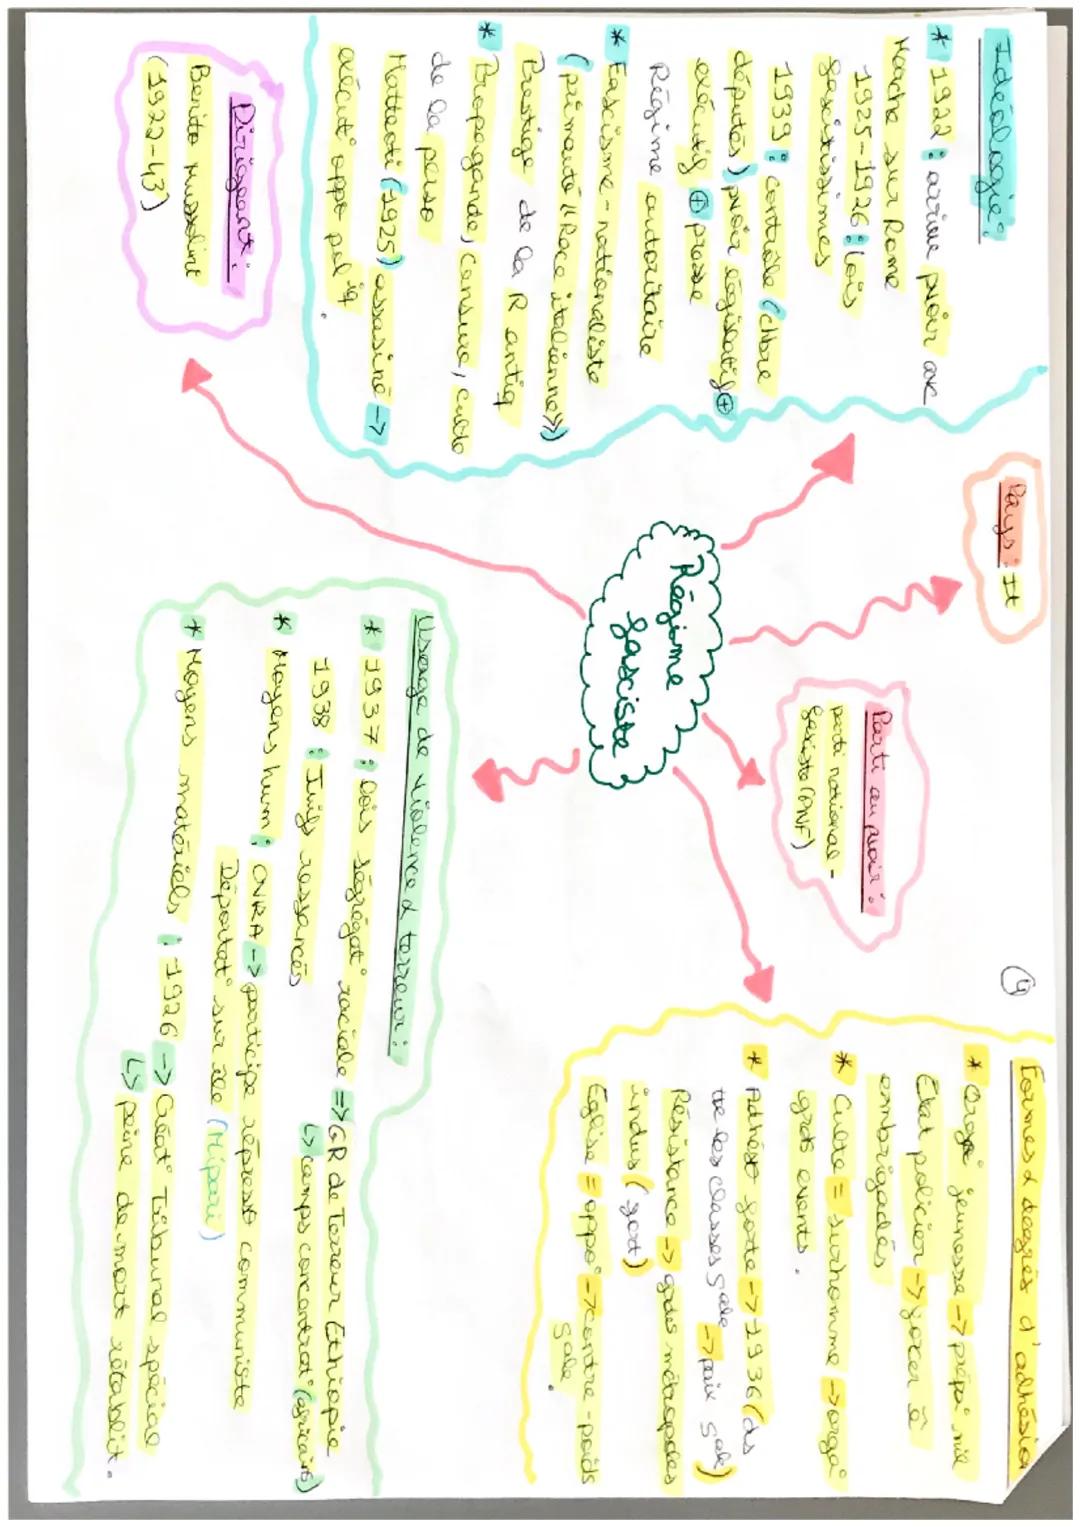 Idéologie :
* 1922 : arrive pvoir avc
Marche sur Rome
1925-1926 : lois
fascistissimes
1939 : contrôle (chbre
députés) pvoir législatif ⊕
exécutif ⊕ presse
Régime autoritaire
* Fascisme-nationaliste
(primauté "Race italienne")
Prestige de la R antiq
* Propagande, censure, culte
de la perso
Matteoti (1925) assasiné ->
exécut° oppo pol iq.
Dirigeant :
Benito Mussolini
(1922-43)
Pays : It
Régime
fasciste
Parti au pvoir :
parti national-
fasciste (PNF)
Usage de violence & terreur :
* 1937 : lois ségrégat° raciale => GR de Terreur Ethiopie
↳ camps concentrat° (africains)
1938 : Juifs ressancés
* Moyens hum : OVRA -> participe répress° communiste
Déportat° sur île (Hipari)
* Moyens matériels : 1926 -> Créat° Tribunal spécial
↳ peine de mort rétablit.
4
Formes & degrés d'adhésion
* Orga° jeunesse -> prépa° mil
État policier -> forcer ê
embrigadés
* Culte = surhomme -> orga°
grds events.
* Adhés° forte -> 1936 (ds
tte les classes sale -> paix sale)
Résistance -> grdes métropoles
indus (gort)
Église = oppo° -> contre-poids
sale.